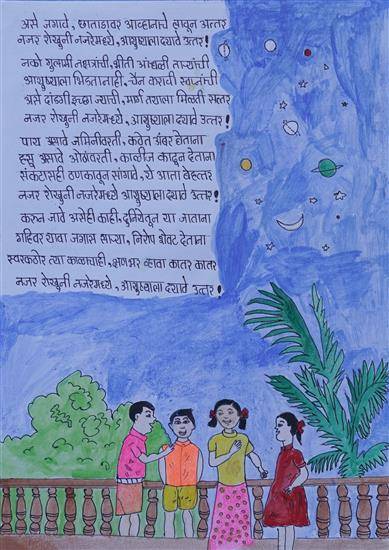 असे जगावे, छाताडावर आव्हानाचे लावून अत्तर
नजर रोखुनी नजरेमध्ये, आयुष्याला द्यावे उत्तर!
नको गुलामी नक्षत्रांची, भीती आंधळी ताऱ्यांची
आयुष्याला भिडतानाही, चैन करावी स्वप्नांची
असे दांडगी इच्छा ज्याची, मार्ग तयाला मिळती सत्तर
नजर रोखुनी नजरेमध्ये, आयुष्याला द्यावे उत्तर!
पाय असावे जमिनीवरती, कवेत अंबर घेताना
हसू असावे ओठांवरती, काळीज काढून देताना
संकटासही ठणकावून सांगावे, ये आता बेहत्तर
नजर रोखुनी नजरेमध्ये आयुष्याला द्यावे उत्तर!
करुन जावे असेही काही, दुनियेतून या जाताना
गहिवर यावा जगास साऱ्या, निरोप शेवट देताना
स्वरकठोर त्या काळाचाही, क्षणभर व्हावा कातर कातर
नजर रोखुनी नजरेमध्ये, आयुष्याला द्यावे उत्तर!